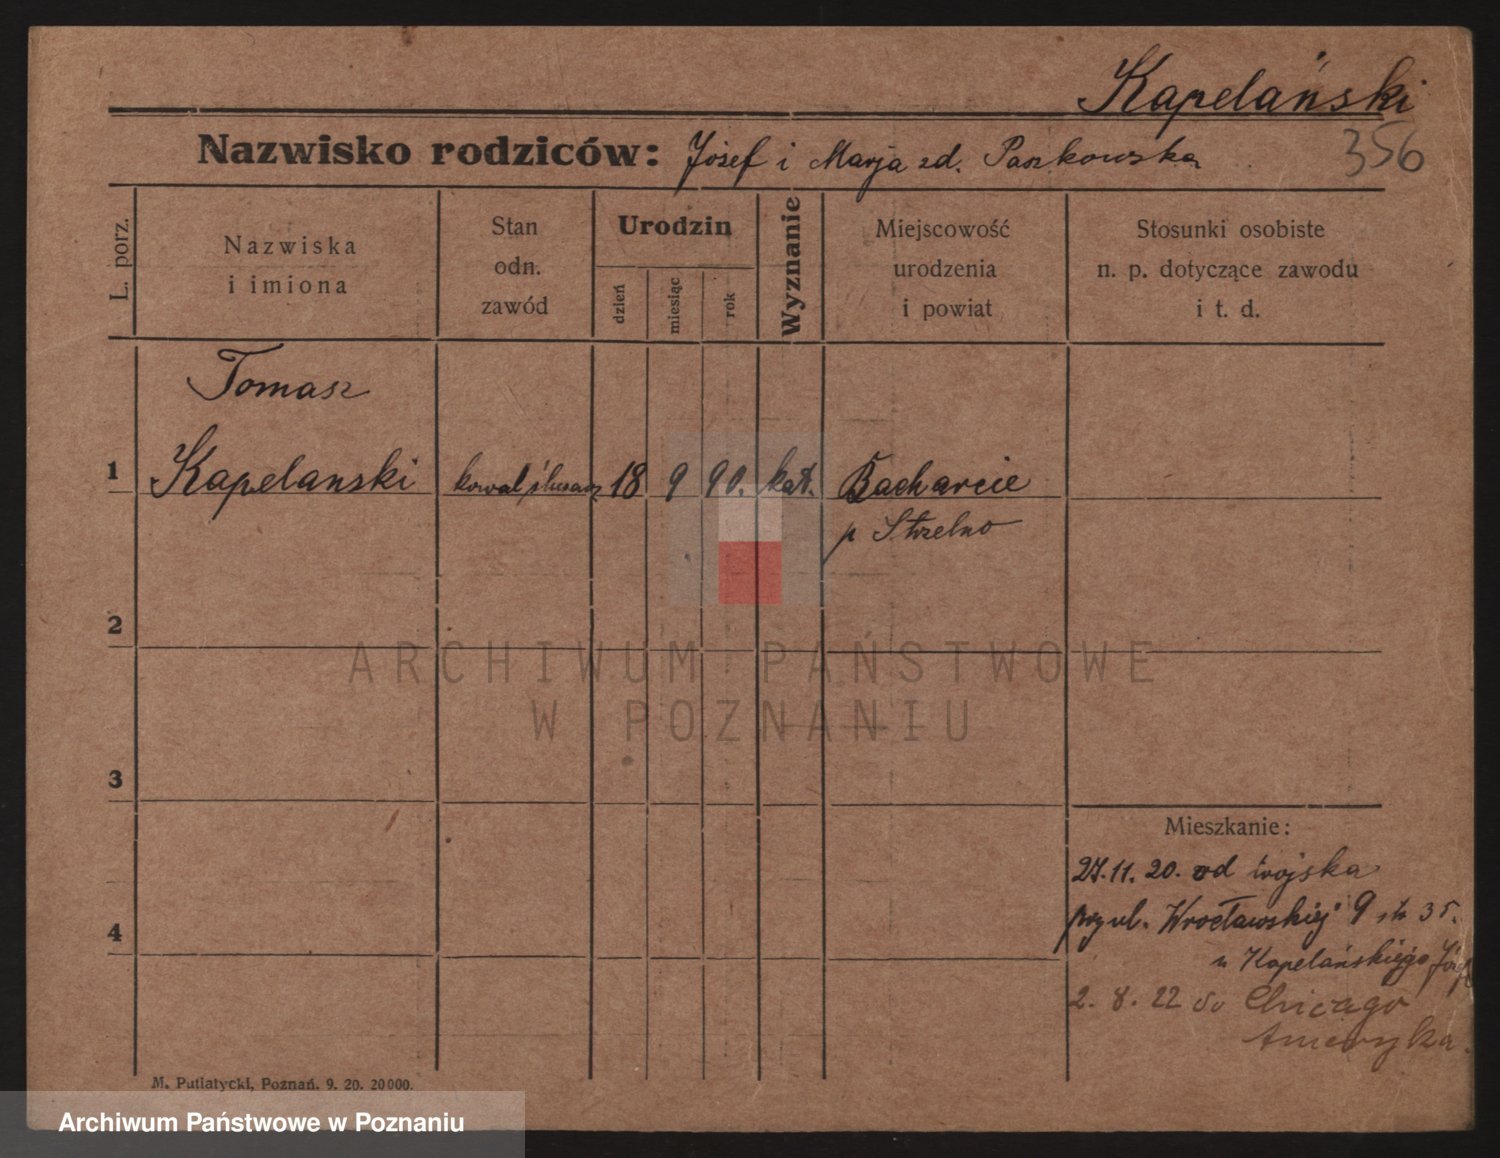 Kapelański
356
Nazwisko rodziców: Józef i Marja zd. Paszkowska
L. porz.
Nazwiska
i imiona
Stan
odn.
zawód
Urodzin
dzień
miesiąc
rok
Wyznanie
Miejscowość
urodzenia
i powiat
Stosunki osobiste
n. p. dotyczące zawodu
i t. d.
Tomasz
1 Kapelanski kowal ślusarz 18 9 90. kat. Bacharcie
p Strzelno
2
ARCHIWUM PAŃSTWOWE
W POZNANIU
3
Mieszkanie:
27.11. 20. od wojska
przy ul. Wrocławskiej 9 35.
4
u Kapelańskiego Józefa
2. 8. 22 do Chicago
Ameryka.
M. Putiatycki, Poznań. 9. 20. 20000.
Archiwum Państwowe w Poznaniu